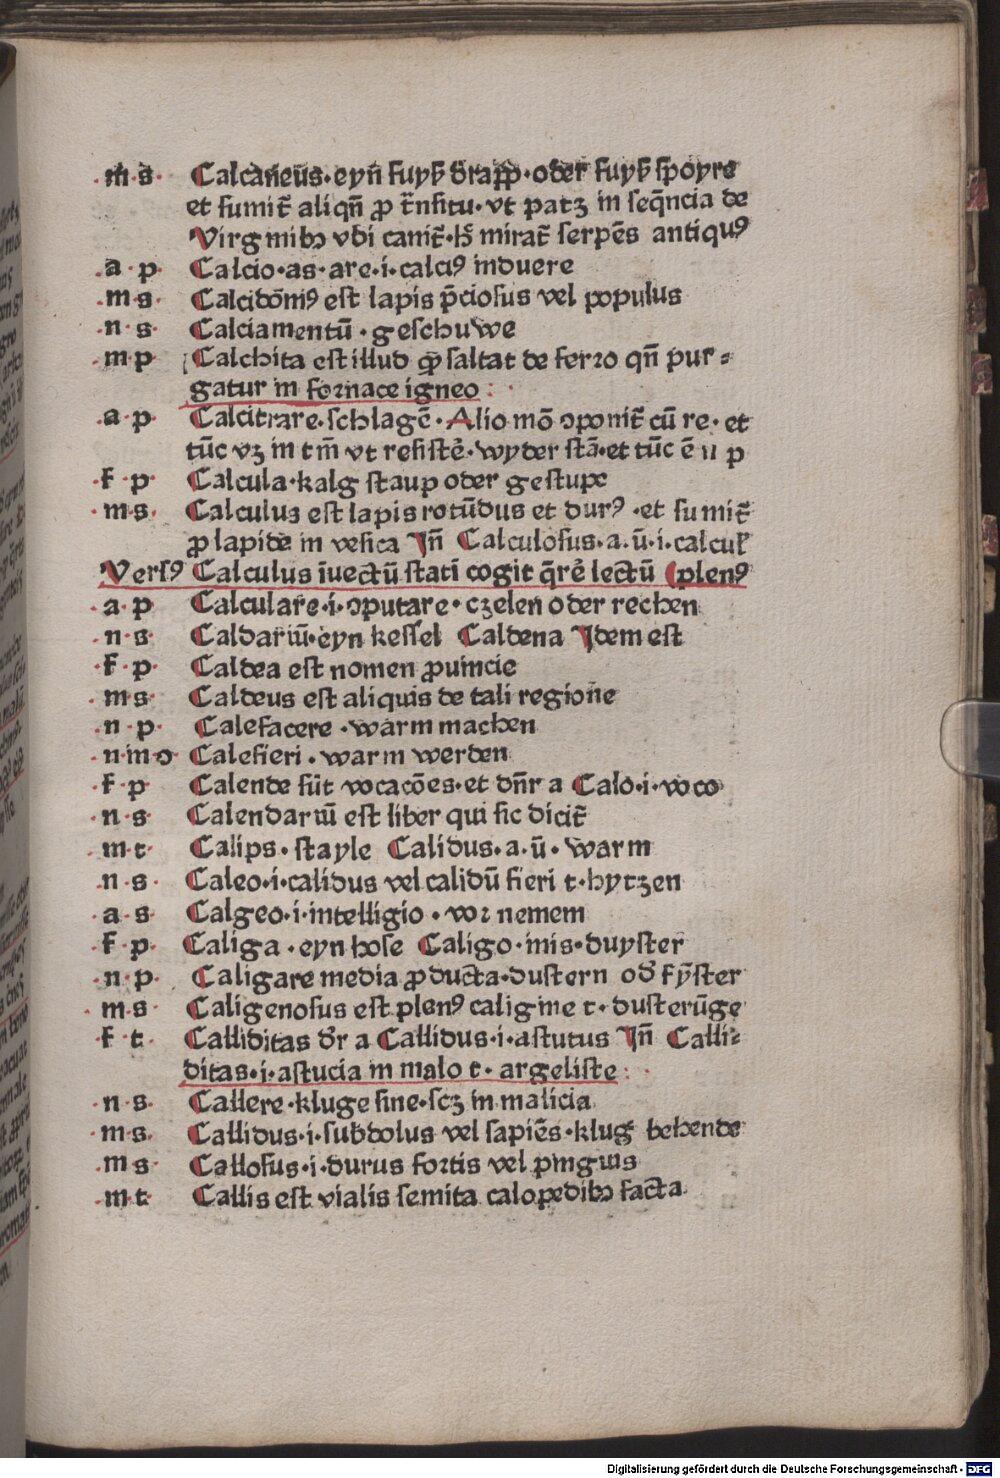 m s Calcaneus · eyn fuyß drapp · oder fuyß spoyre
et sumit̄ aliqn̄ ꝓ t̄nsitu · vt patꝫ in seq̄ncia de
Virginibꝫ vbi canit̄ · hͦ mirat̄ serpēs antiquꝰ
a · p · Calcio · as · are · i · calciꝰ induere
m s · Calcidōniꝰ est lapis p̄ciosus vel populus
n · s · Calciamentū · geschuwe
m p Calchita est illud qđ saltat de ferro qn̄ pur-
gatur in fornace igneo :
a · p · Calcitrare · schlagē · Alio mō ꝯponit̄ cū re · et
tūc vꝫ in tm̄ vt resistē · wyder stā · et tūc ē n p
f · p · Calcula · kalg staup oder gestupe
m s · Calculus est lapis rotūdus et durꝰ · et sumit̄
ꝓ lapide in vesica Jn̄ Calculosus · a · ū · i · calcul̄
Versꝰ Calculus īuectū stati cogit q̄rē lectū (plenꝰ
a · p Calculare · i · ꝯputare · czelen oder rechen
n · s · Caldariū · eyn kessel Caldena Jdem est
f · p · Caldea est nomen ꝓuincie
m s · Caldeus est aliquis de tali regione
n · p · Calefacere · warm machen
n · m · o · Calefieri · warm werden
f · p Calende sūt vocacōes · et dn̄r a Calo · i · voco
n · s · Calendariū est liber qui sic dicit̄
m · t · Calips · stayle Calidus · a · ū · warm
n · s · Caleo · i · calidus vel calidū fieri t · hytzen
a · s · Calgeo · i · intelligio · vor nemem
f · p · Caliga · eyn hose Caligo · inis · duyster
n · p · Caligare media ꝓducta · dustern od̄ fÿster
m · s · Caligenosus est plenꝰ caligine t · dusterūge
f · t · Calliditas dr̄ a Callidus · i · astutus Jn̄ Calli-
ditas · i · astucia in malo t · argeliste :
n · s · Callere · kluge sine · scꝫ in malicia
m s · Callidus · i · subdolus vel sapiēs · klug behende
m s · Callosus · i · durus fortis vel pinguis
m t · Callis est vialis semita calopedibꝫ facta
Digitalisierung gefördert durch die Deutsche Forschungsgemeinschaft - DFG